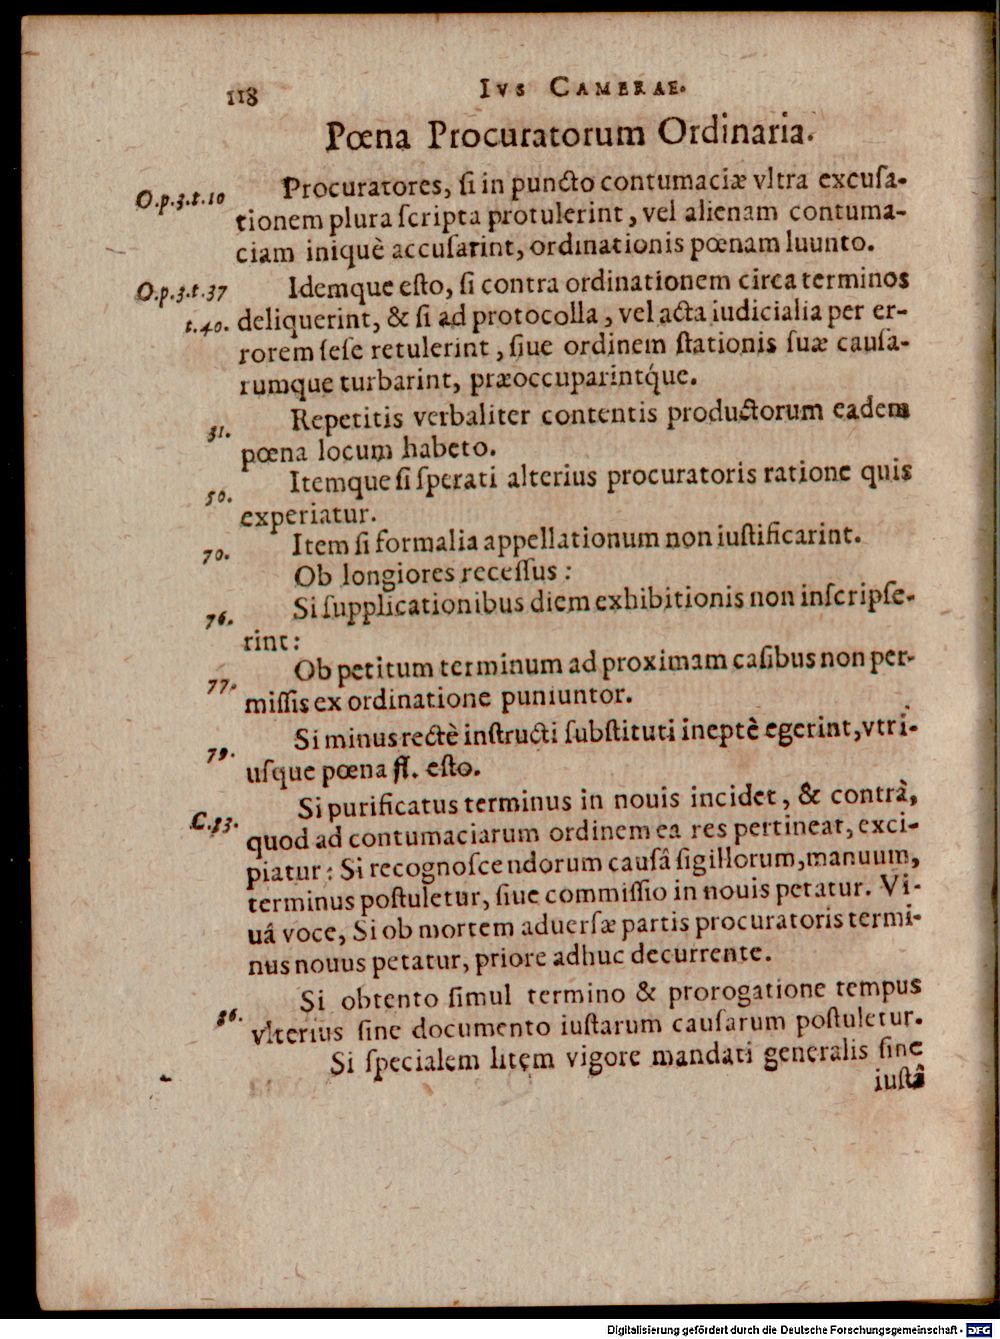 118 IVS CAMERAE.
Pœna Procuratorum Ordinaria.
O.p.3.t.10 Procuratores, ſi in puncto contumaciæ vltra excuſa-
tionem plura ſcripta protulerint, vel alienam contuma-
ciam iniquè accuſarint, ordinationis pœnam luunto.
O.p.3.t.37 Idemque eſto, ſi contra ordinationem circa terminos
t.40. deliquerint, & ſi ad protocolla, vel acta iudicialia per er-
rorem ſeſe retulerint, ſiue ordinem ſtationis ſuæ cauſa-
rumque turbarint, præoccuparintq́ue.
31. Repetitis verbaliter contentis productorum eadem
pœna locum habeto.
50. Itemque ſi ſperati alterius procuratoris ratione quis
experiatur.
70. Item ſi formalia appellationum non iuſtificarint.
Ob longiores receſſus:
76. Si ſupplicationibus diem exhibitionis non inſcripſe-
rint:
77. Ob petitum terminum ad proximam caſibus non per-
miſſis ex ordinatione puniuntor.
79. Si minus rectè inſtructi ſubſtituti ineptè egerint, vtri-
uſque pœna fl. eſto.
C.83. Si purificatus terminus in nouis incidet, & contrà,
quod ad contumaciarum ordinem ea res pertineat, exci-
piatur: Si recognoſcendorum cauſâ ſigillorum, manuum,
terminus poſtuletur, ſiue commiſſio in nouis petatur. Vi-
uâ voce, Si ob mortem aduerſæ partis procuratoris termi-
nus nouus petatur, priore adhuc decurrente.
86. Si obtento ſimul termino & prorogatione tempus
vlterius ſine documento iuſtarum cauſarum poſtuletur.
Si ſpecialem litem vigore mandati generalis ſine
iuſtâ
Digitalisierung gefördert durch die Deutsche Forschungsgemeinschaft - DFG